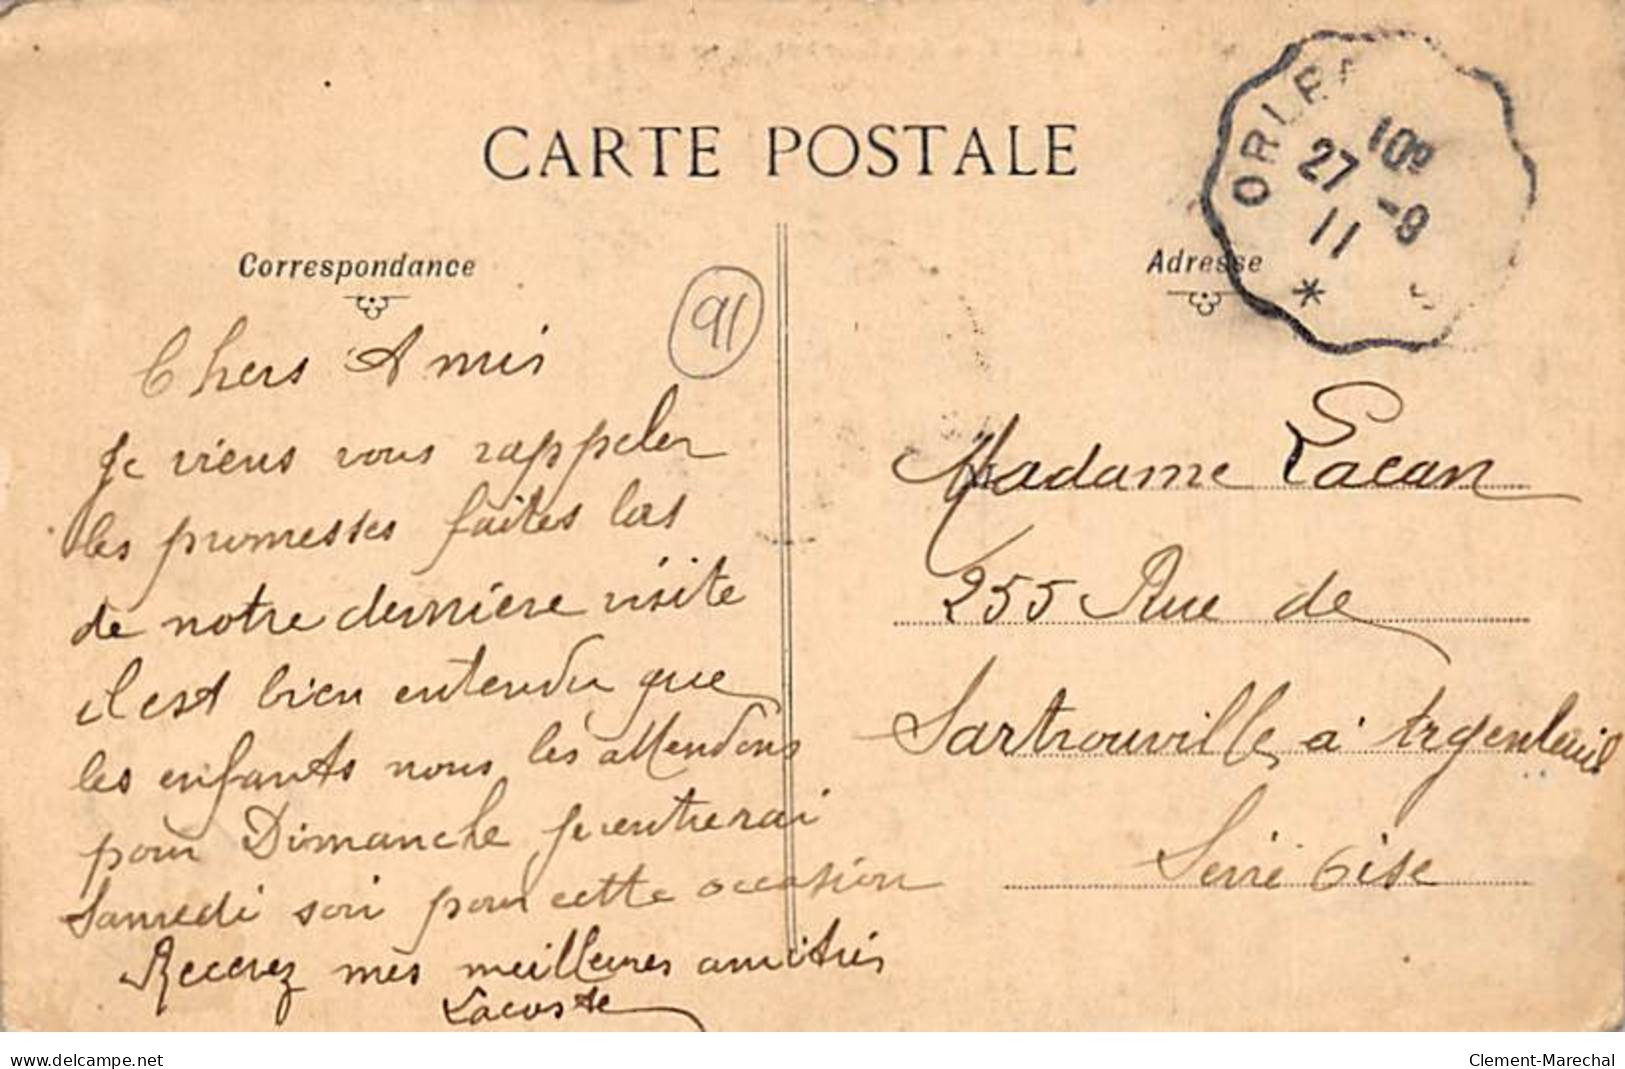 CARTE POSTALE
Correspondance
Adresse
ORLEA
10e
27 -9
11
*
91
Chers Amis
Je viens vous rappeler
les promesses faites lors
de notre dernière visite
il est bien entendu que
les enfants nous les attendons
pour Dimanche je rentrerai
Samedi soir pour cette occasion
Recevez mes meilleures amitiés
Lacoste
Madame Lacan
255 Rue de
Sartrouville à Argenteuil
Seine Oise
www.delcampe.net
Clement-Marechal